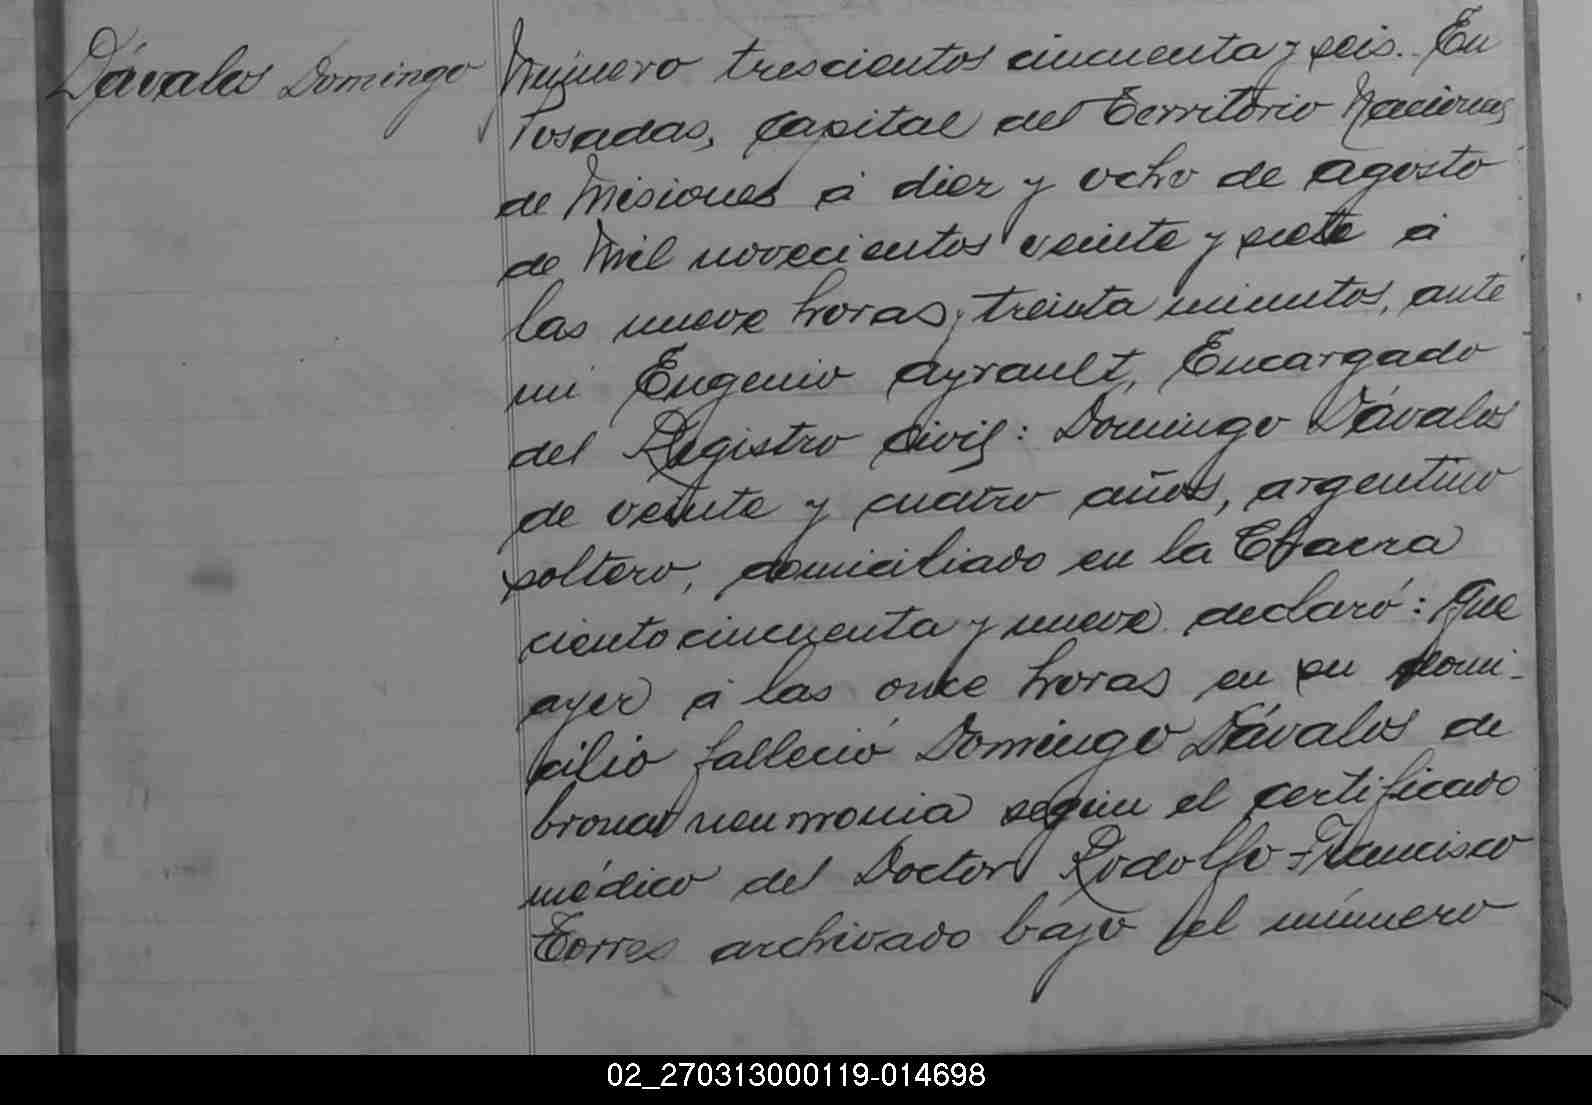 Dávalos Domingo
Número trescientos cincuenta y seis. En
Posadas, Capital del Territorio Nacional
de Misiones á diez y ocho de agosto
de Mil novecientos veinte y siete á
las nueve horas, treinta minutos, ante
mi Eugenio Ayrault, Encargado
del Registro Civil: Domingo Dávalos
de veinte y cuatro años, argentino
soltero, domiciliado en la Chacra
ciento cincuenta y nueve declaró: Que
ayer á las once horas en su domi-
cilio falleció Domingo Dávalos de
bronco neumonia según el certificado
médico del Doctor Rodolfo Francisco
Torres archivado bajo el número
02_270313000119-014698